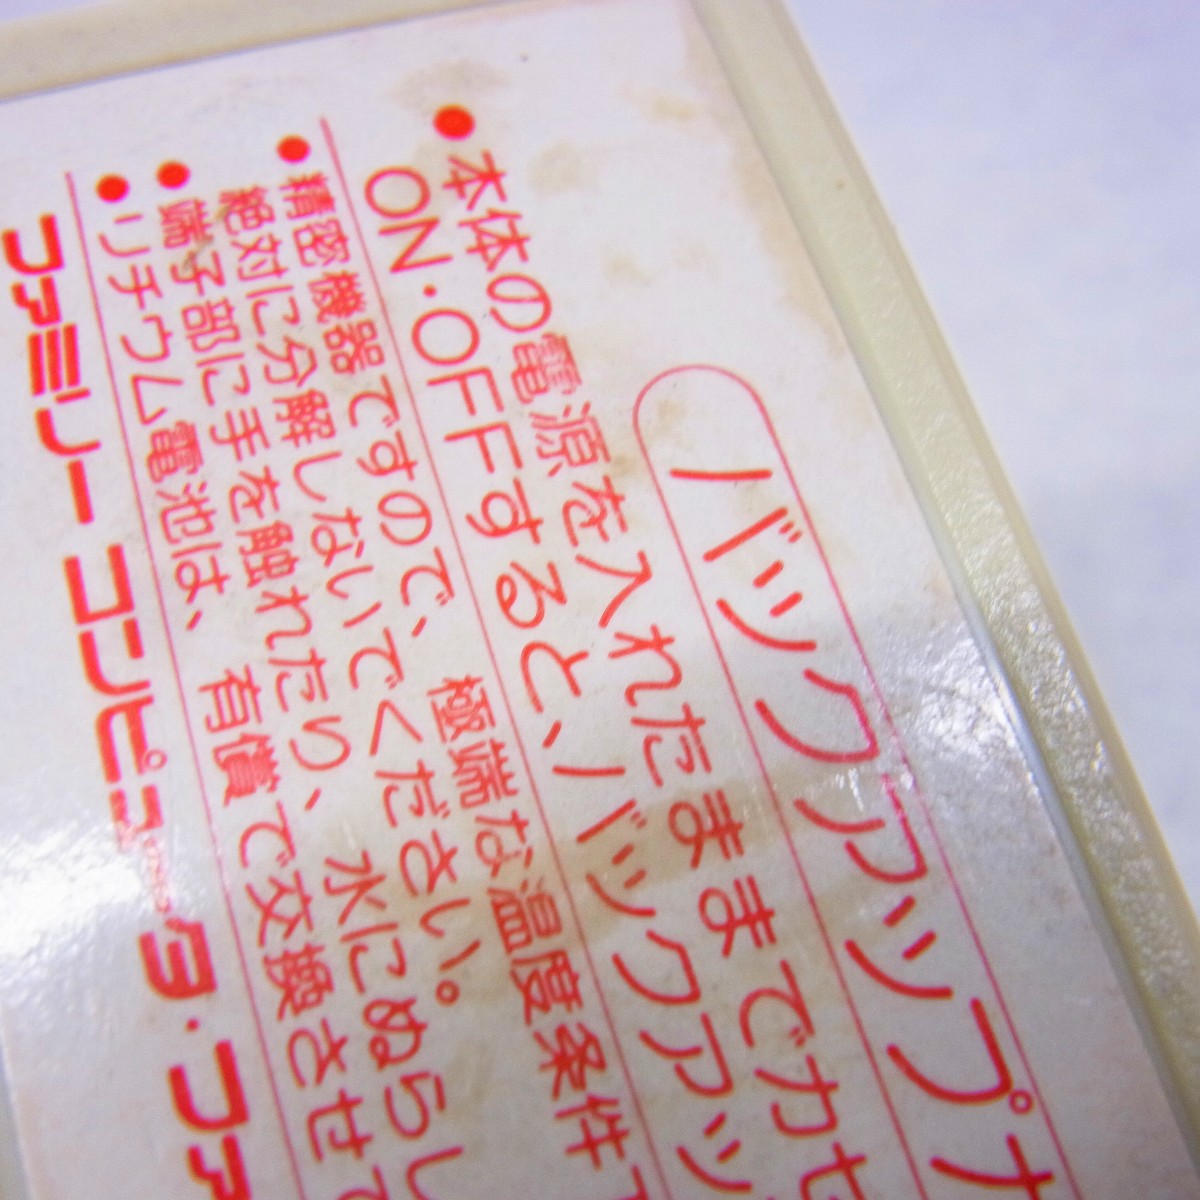 バックアップナ
●本体の電源を入れたままでカセ
ON・OFFすると、バックアッ
●精密機器ですので、極端な温度条件
絶対に分解しないでください。
●端子部に手を触れたり、水にぬらし
●リチウム電池は、有償で交換させて
ファミリーコンピュータ・ファ